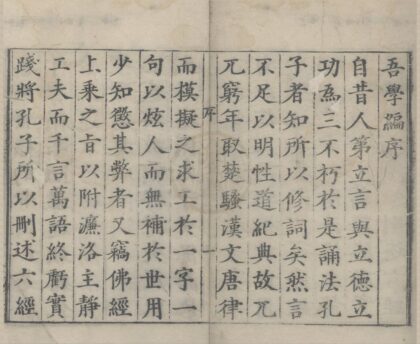 吾學編序
自昔人第立言與立德立
功為三不朽於是誦法孔
子者知所以修詞矣然言
不足以明性道紀典故兀
兀窮年取楚騷漢文唐律
序
一
而模擬之求工於一字一
句以炫人而無補於世用
少知懲其弊者又竊佛經
上乘之旨以附濂洛主靜
工夫而千言萬語終虧實
踐將孔子所以刪述六經